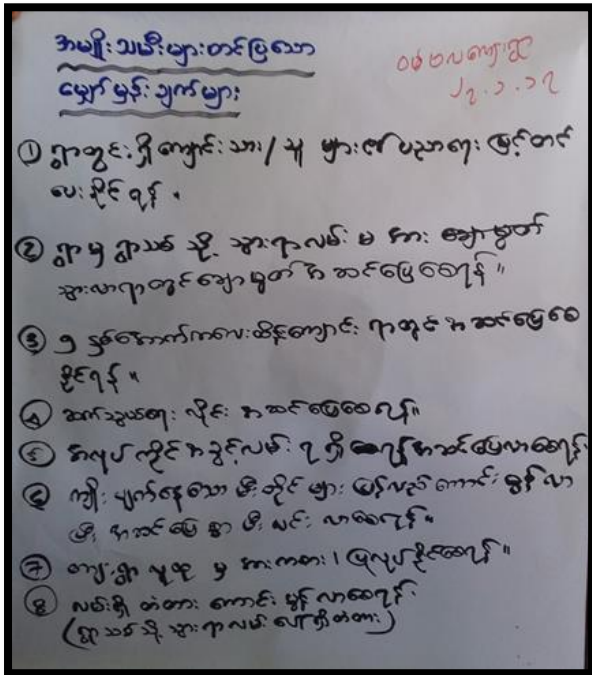 အမျိုးသမီးများတင်ပြသော
မျှော်မှန်းချက်များ
① ရွာတွင်းရှိ ကျောင်းသား/သူ များ၏ ပညာရေး မြှင့်တင်
ပေးနိုင်ရန်။
② ရွာမှ ရွာသစ် သို့ သွားရာလမ်း မ အား ချောမွတ်
သွားလာရာတွင် ချောမွတ် အဆင်ပြေစေရန်။
③ ၅ နှစ်အောက်ကလေးထိန်းကျောင်း ရွာတွင် အဆင်ပြေစေ
နိုင်ရန်။
④ ဆက်သွယ်ရေး လိုင်း အဆင်ပြေစေရန်။
⑤ အလုပ်အကိုင်အခွင့်လမ်း ရရှိရန် အဆင်ပြေလာစေရန်
⑥ ကျိုးပျက်နေသော မီးတိုင်များ ပြန်လည်ကောင်းမွန်လာ
ပြီး အဆင်ပြေစွာ မီးလင်းလာစေရန်။
⑦ ကျေးရွာလူထု မှ အားကစား ပြုလုပ်နိုင်စေရန်။
⑧ လမ်းရှိ တံတား ကောင်းမွန်လာစေရန်
(ရွာသစ်သို့ သွားရာလမ်းပေါ်ရှိတံတား)